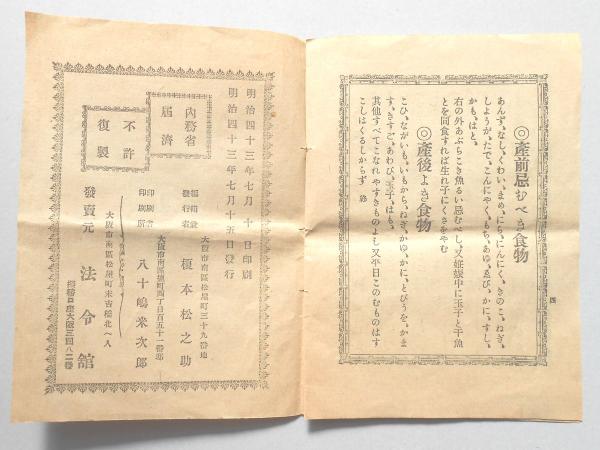 ◎產前忌むべき食物
あんず、なし、くわい、まめ、にら、にんにく、きのこ、ねぎ、
しようが、たで、こんにやく、もち、あゆ、ゑび、かに、すし、
かも、はと、
右の外あぶらこき魚るい忌むべし、又姙娠中に玉子と干魚
とを同食すれば生れ子にくさをやむ
◎產後よき食物
こひ、ながいも、いもから、ねぎ、かゆ、かに、とびうを、かま
す、きすご、あわび、玉子、はも、
其他すべてこなれやすきものよし又平日このむものはす
こしはくるしからず
四
明治四十三年七月十日印刷
明治四十三年七月十五日發行
內務省
屆濟
不許
復製
大阪市南區松屋町三十九番地
編輯兼
發行者
榎本松之助
大阪市南區鹽町四丁目百五十一番邸
印刷者
印刷所
八十嶋米次郎
大阪市南區松屋町末吉橋北へ入
發賣元
法令舘
振替口座大阪三四八二番